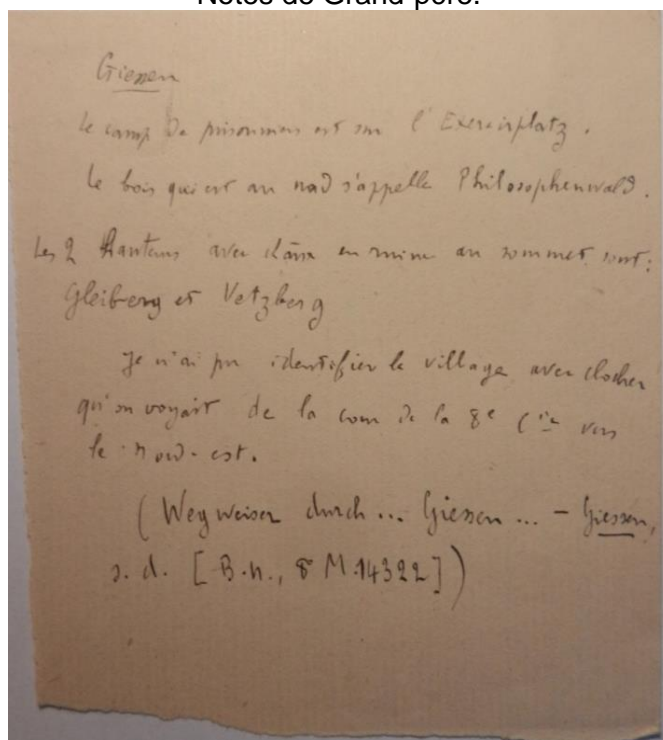 Notes de Grand-père.
Giessen
Le camp de prisonniers est sur l'Exerzirplatz.
Le bois qui est au nord s'appelle Philosophenwald.
Les 2 hauteurs avec château en ruine au sommet sont:
Gleiberg et Vetzberg
Je n'ai pu identifier le village avec clocher
qu'on voyait de la cour de la 8e Cie vers
le Nord-est.
(Wegweiser durch... Giessen... - Giessen,
s.d. [B.N., 8 M.14322])